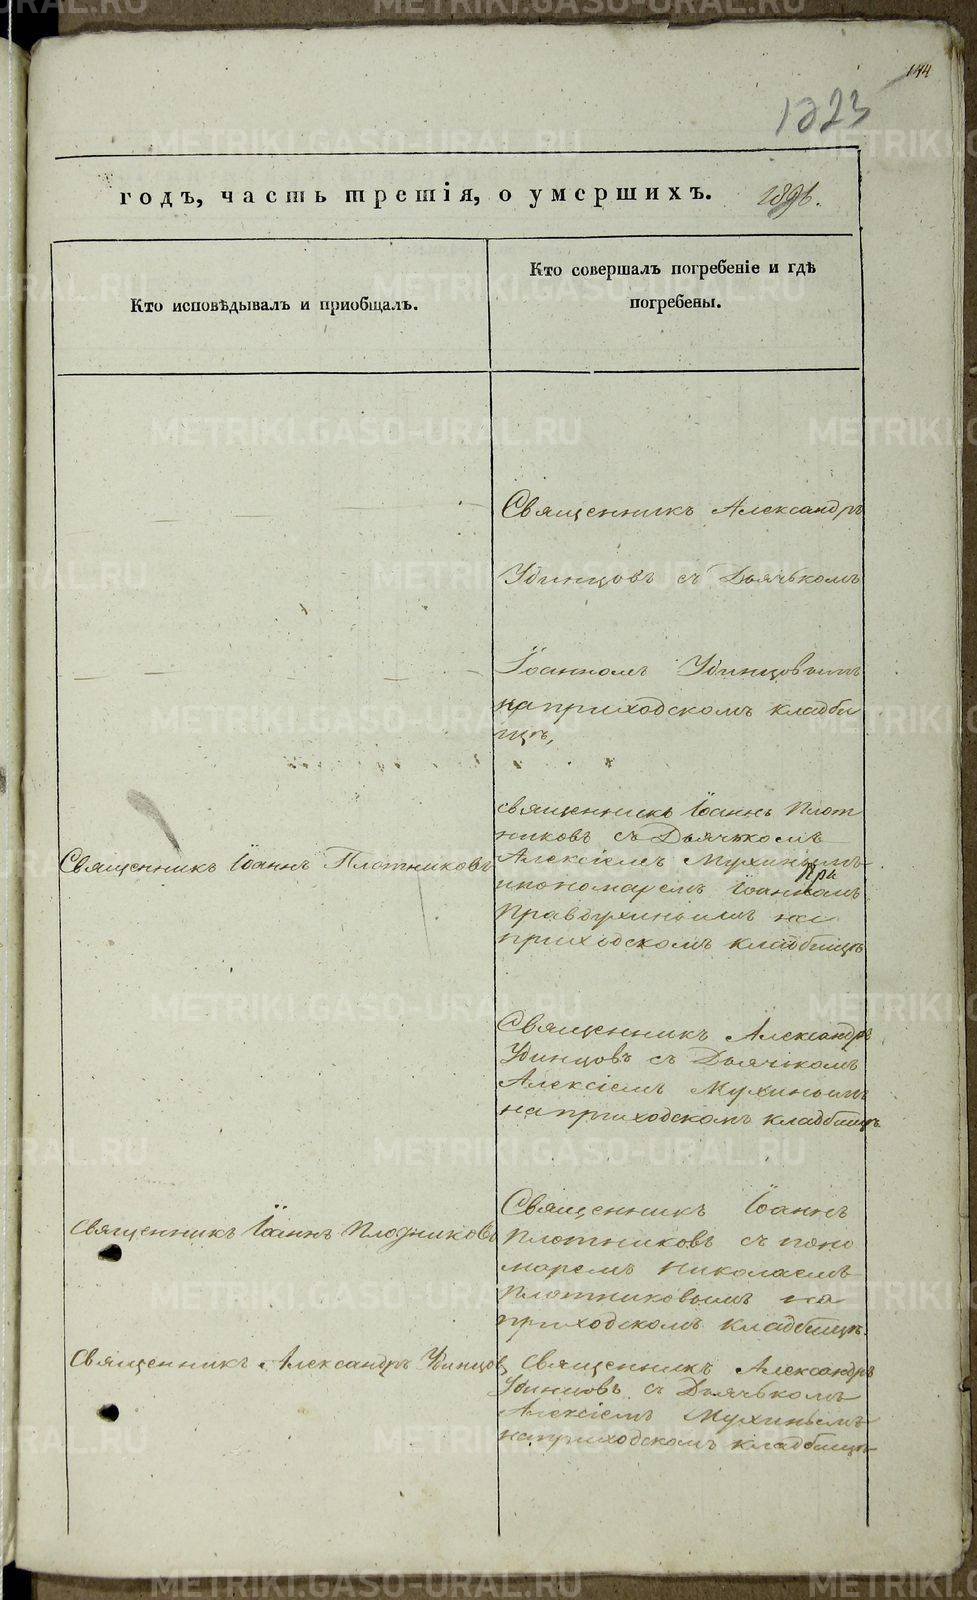 144
1223
годъ, часть третія, о умершихъ.
Кто исповѣдывалъ и приобщалъ.
Кто совершалъ погребеніе и гдѣ
погребены.
Священникъ Александръ
Удинцовъ съ Дьячькомъ
Іоанномъ Удинцовымъ
на приходскомъ кладби
щѣ,
Священникъ Іоаннъ Плотниковъ
священникъ Іоаннъ Плот
никовъ съ Дьячькомъ
Алексіемъ Мухинымъ
при
и пономаремъ Іоанномъ
Правдухинымъ на
приходскомъ кладбищѣ
Священникъ Александръ
Удинцовъ съ Дьячкомъ
Алексіемъ Мухинымъ
на приходскомъ кладбищѣ
священникъ Іоаннъ Плодниковъ
Священникъ Іоаннъ
Плотниковъ съ поно
маремъ Николаемъ
Плотниковымъ на
приходскомъ кладбищѣ.
Священникъ Александръ Удинцов
Священникъ Александръ
Удинцовъ съ Дьячькомъ
Алексіемъ Мухинымъ
на приходскомъ кладбищѣ
METRIKI.GASO-URAL.RU